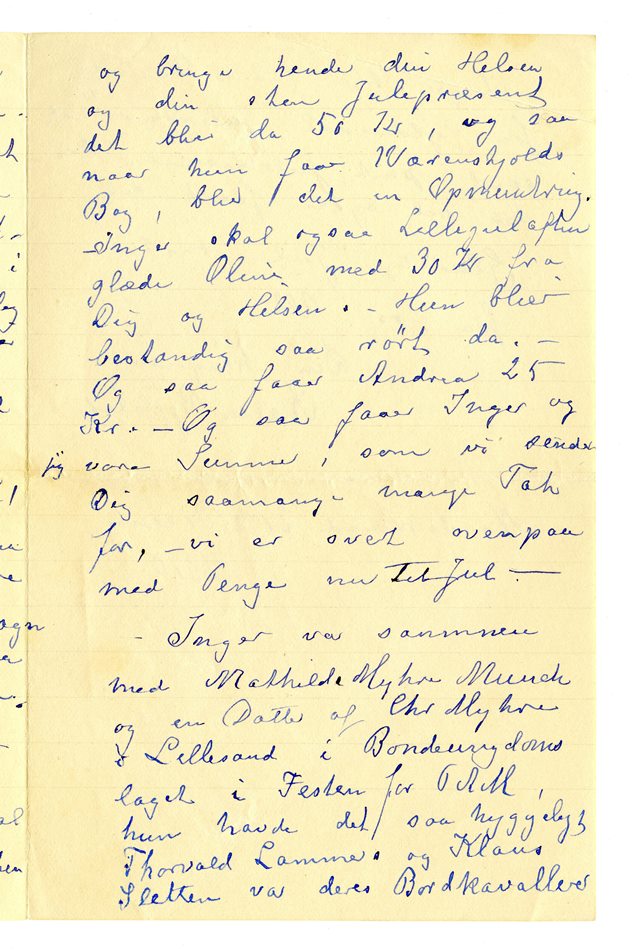 og bringe hende din Helsen
og din store Julepræsent
det blir da 50 Kr, og saa
naar hun faar Værenskjolds
Bog, blir det en Opmuntring.
– Inger skal ogsaa Lillejulaften
glæde Oline med 30 Kr fra
Dig og Helsen. – Hun blir
bestandig saa rørt da. –
Og saa faaer Andrea 25
Kr. – Og saa faaer Inger og
jeg vore Summe, som vi sender
Dig saamange mange Tak
for, – vi er svert ovenpaa
med Penge nu til Jul –
– Inger var sammen
med Mathilde Myhre Munch
og en Datter af Chr Myhre
i Lillesand i Bondeungdoms
laget i Festen for
hun havde det saa hyggeligt
Thorvald Lammers og Klaus
Sletten var deres Bordkavallerer